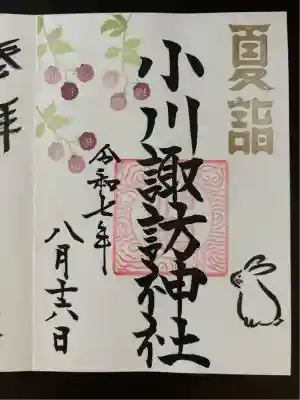 夏詣
小川諏訪神社
令和七年
八月十六日
参拝